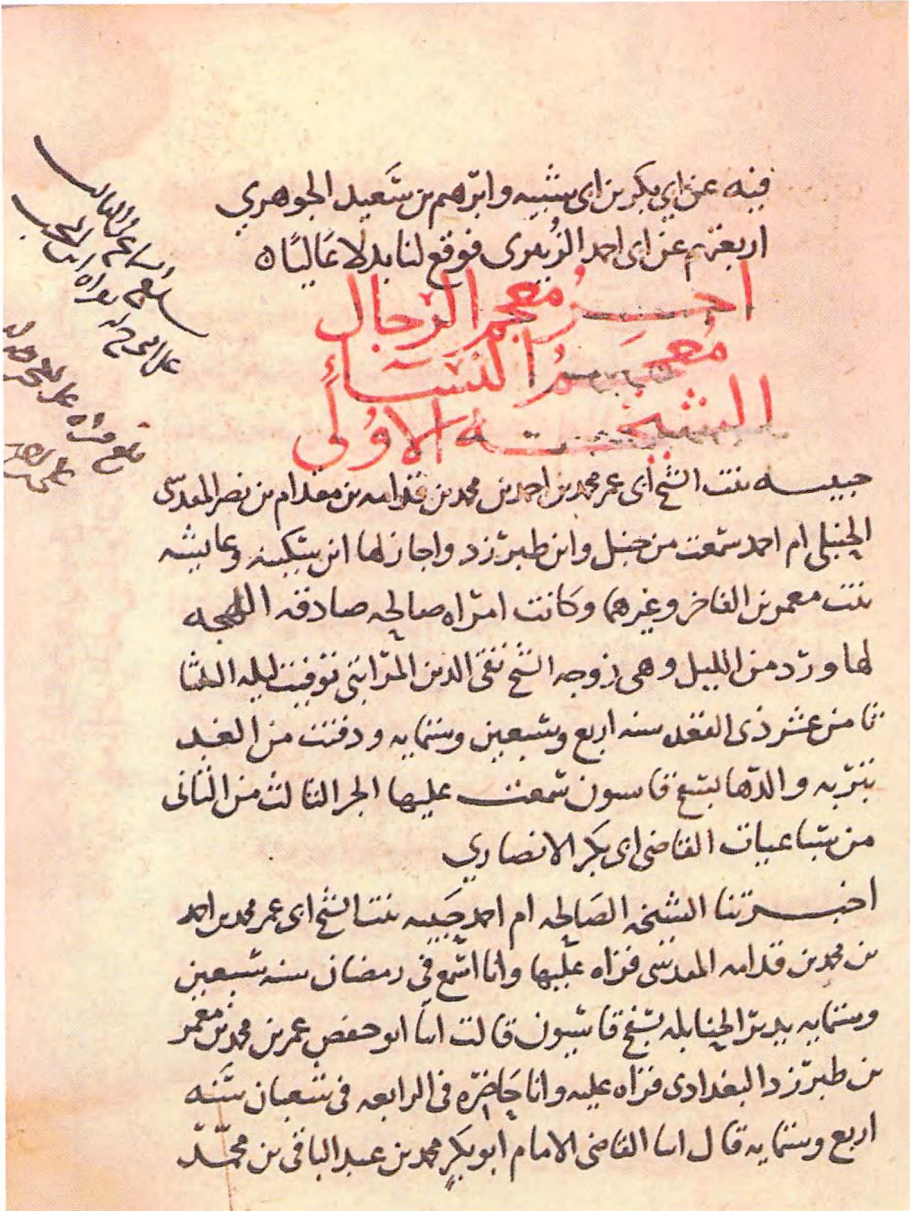 فيه عن ابي بكر بن ابي شيبه وابرهيم بن سَعيد الجوهري
اربعتهم عن ابي احمد الزُبيري فوقع لنا بدلا عَاليًا ه
اخـــر مُعجم الرجال
مُعجـــم النسَاءِ
الشيخـــه الاوُلى
حبيبـــه بنت الشيخ ابي عمر محمد بن احمد بن محمد بن قدامه بن مقدام بن نصر المقدسي
الحنبلي ام احمد سمعت من حنبل وابن طبرزد واجاز لها ابن سكينه وعايشه
بنت معمر بن الفاخر وغيرهما وكانت امراه صالحه صادقه اللهجه
لها ورد من الليل وهي زوجه الشيخ تقي الدين المراتبي توفيت ليله الثلثا
ثامن عشر ذي القعده سنه اربع وسبعين وستمايه ودفنت من الغد
بتربه والدها بسفح قاسون سمعت عليها الجز الثالث من الثاني
من سباعيات القاضي ابي بكر الانصاري
اخبـــرتنا الشيخه الصَالحه ام احمد حَبيبه بنت الشيخ ابي عمر محمد بن احمد
بن محمد بن قدامه المقدسي قراه عليها وانا اسمع في رمضان سنه سبعين
وستمايه بدير الحنابله بسفح قاسيون قالت انا ابو حفص عمر بن محمد بن معمر
بن طبرزد البغدادي قراه عليه وانا حَاضرَه في الرابعه في شعبان سَنه
اربع وستمايه قال انا القاضي الامام ابو بكر محمد بن عبد الباقي بن محمّد